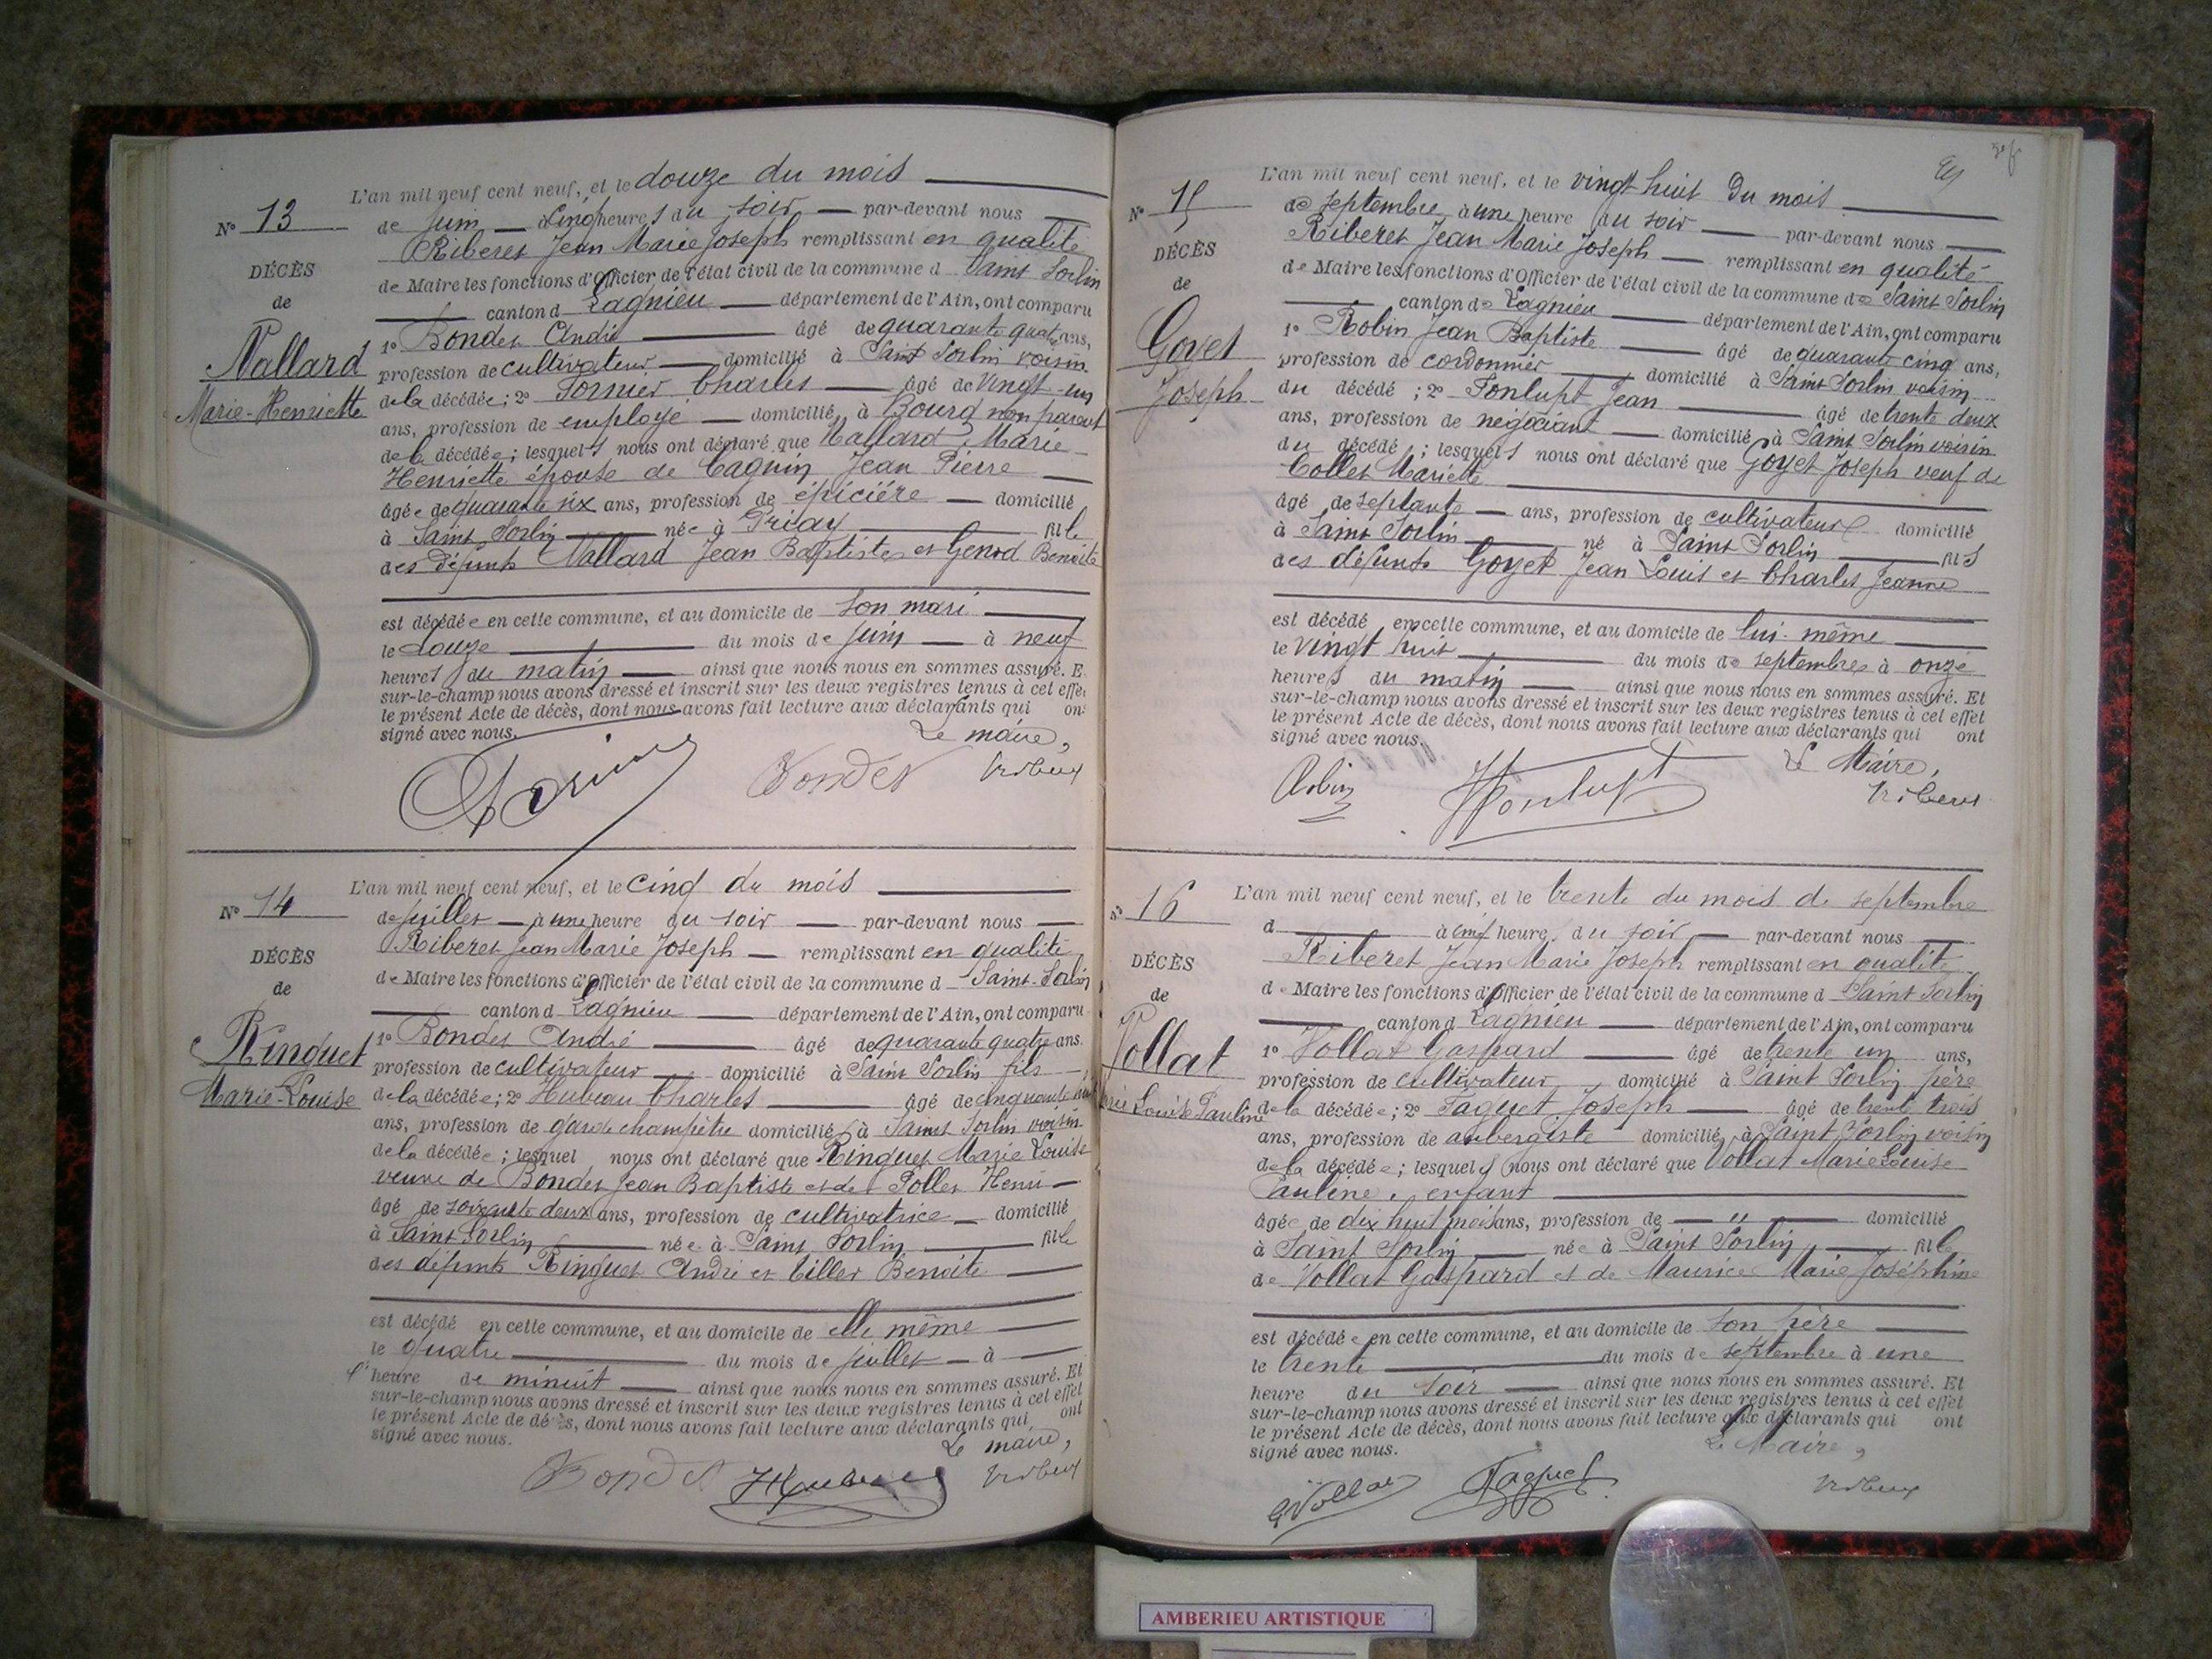 L'an mil neuf cent neuf, et le douze du mois
N° 13
de juin à cinq heures du soir par-devant nous
Riberet Jean Marie Joseph remplissant en qualité
DÉCÈS
de Maire les fonctions d'Officier de l'état civil de la commune d Saint Sorlin
de
canton d Lagnieu département de l'Ain, ont comparu
1° Bondet André âgé de quarante quatre ans,
Nallard
profession de cultivateur domicilié à Saint Sorlin voisin
Marie-Henriette
de la décédée; 2° Fornier Charles âgé de vingt-un
ans, profession de employé domicilié à Bourg non parent
de la décédée; lesquels nous ont déclaré que Nallard Marie
Henriette épouse de Jean Pierre
âgée de quarante six ans, profession de épicière domicilié
à Saint Sorlin née à Priay fille
des défunts Nallard Jean Baptiste et Genod Benoite
est décédée en cette commune, et au domicile de son mari
le douze du mois de juin à neuf
heures du matin ainsi que nous nous en sommes assuré. E
sur-le-champ nous avons dressé et inscrit sur les deux registres tenus à cet effe
le présent Acte de décès, dont nous avons fait lecture aux déclarants qui on
signé avec nous.
Le maire,
Bondet
L'an mil neuf cent neuf, et le cinq du mois
N° 14
de juillet à une heure du soir par-devant nous
Riberet Jean Marie Joseph remplissant en qualité
DÉCÈS
de Maire les fonctions d'Officier de l'état civil de la commune d Saint-Sorlin
de
canton d Lagnieu département de l'Ain, ont comparu
Ringuet
1° Bondet André âgé de quarante quatre ans
profession de cultivateur domicilié à Saint Sorlin fils
Marie-Louise
de la décédée; 2° Hubeau Charles âgé de cinquante
ans, profession de garde champêtre domicilié à Saint Sorlin voisin
de la décédée; lesquel nous ont déclaré que Ringuet Marie Louise
veuve de Bondet Jean Baptiste et de Pollet Henri
âgé de soixante deux ans, profession de cultivatrice domicilié
à Saint Sorlin née à Saint Sorlin fille
des défunts Ringuet André et Tiller Benoite
est décédé en cette commune, et au domicile de elle même
le quatre du mois de juillet à
l'heure de minuit ainsi que nous nous en sommes assuré. Et
sur-le-champ nous avons dressé et inscrit sur les deux registres tenus à cet effet
le présent Acte de décès, dont nous avons fait lecture aux déclarants qui ont
signé avec nous.
Le maire,
Bondet
L'an mil neuf cent neuf, et le vingt huit du mois
N° 15
de septembre à une heure du soir par-devant nous
Riberet Jean Marie Joseph remplissant en qualité
DÉCÈS
de Maire les fonctions d'Officier de l'état civil de la commune de Saint Sorlin
de
canton de Lagnieu département de l'Ain, ont comparu
Goyet
1° Robin Jean Baptiste âgé de quarante cinq ans,
profession de cordonnier domicilié à Saint Sorlin voisin
Joseph
du décédé; 2° Fonlupt Jean âgé de trente deux
ans, profession de négociant domicilié à Saint Sorlin voisin
du décédé; lesquels nous ont déclaré que Goyet Joseph veuf de
Collet Mariette
âgé de septante ans, profession de cultivateur domicilié
à Saint Sorlin né à Saint Sorlin fils
des défunts Goyet Jean Louis et Charlet Jeanne
est décédé en cette commune, et au domicile de lui-même
le vingt huit du mois de septembre à onze
heures du matin ainsi que nous nous en sommes assuré. Et
sur-le-champ nous avons dressé et inscrit sur les deux registres tenus à cet effet
le présent Acte de décès, dont nous avons fait lecture aux déclarants qui ont
signé avec nous.
Le Maire,
Robin Fonlupt
L'an mil neuf cent neuf, et le trente du mois de septembre
N° 16
d à cinq heures du soir par-devant nous
Riberet Jean Marie Joseph remplissant en qualité
DÉCÈS
de Maire les fonctions d'Officier de l'état civil de la commune d Saint Sorlin
de
canton d Lagnieu département de l'Ain, ont comparu
Vollat
1° Vollat Gaspard âgé de trente un ans,
profession de cultivateur domicilié à Saint Sorlin père
Louise Pauline
de la décédée; 2° Faguet Joseph âgé de trente trois
ans, profession de aubergiste domicilié à Saint Sorlin voisin
de la décédée; lesquels nous ont déclaré que Vollat Marie Louise
Pauline, enfant
âgée de dix huit mois ans, profession de " domicilié
à Saint Sorlin née à Saint Sorlin fille
de Vollat Gaspard et de Maurice Marie Joséphine
est décédée en cette commune, et au domicile de son père
le trente du mois de septembre à une
heure du soir ainsi que nous nous en sommes assuré. Et
sur-le-champ nous avons dressé et inscrit sur les deux registres tenus à cet effet
le présent Acte de décès, dont nous avons fait lecture aux déclarants qui ont
signé avec nous.
Le Maire,
G Vollat Faguet
AMBERIEU ARTISTIQUE